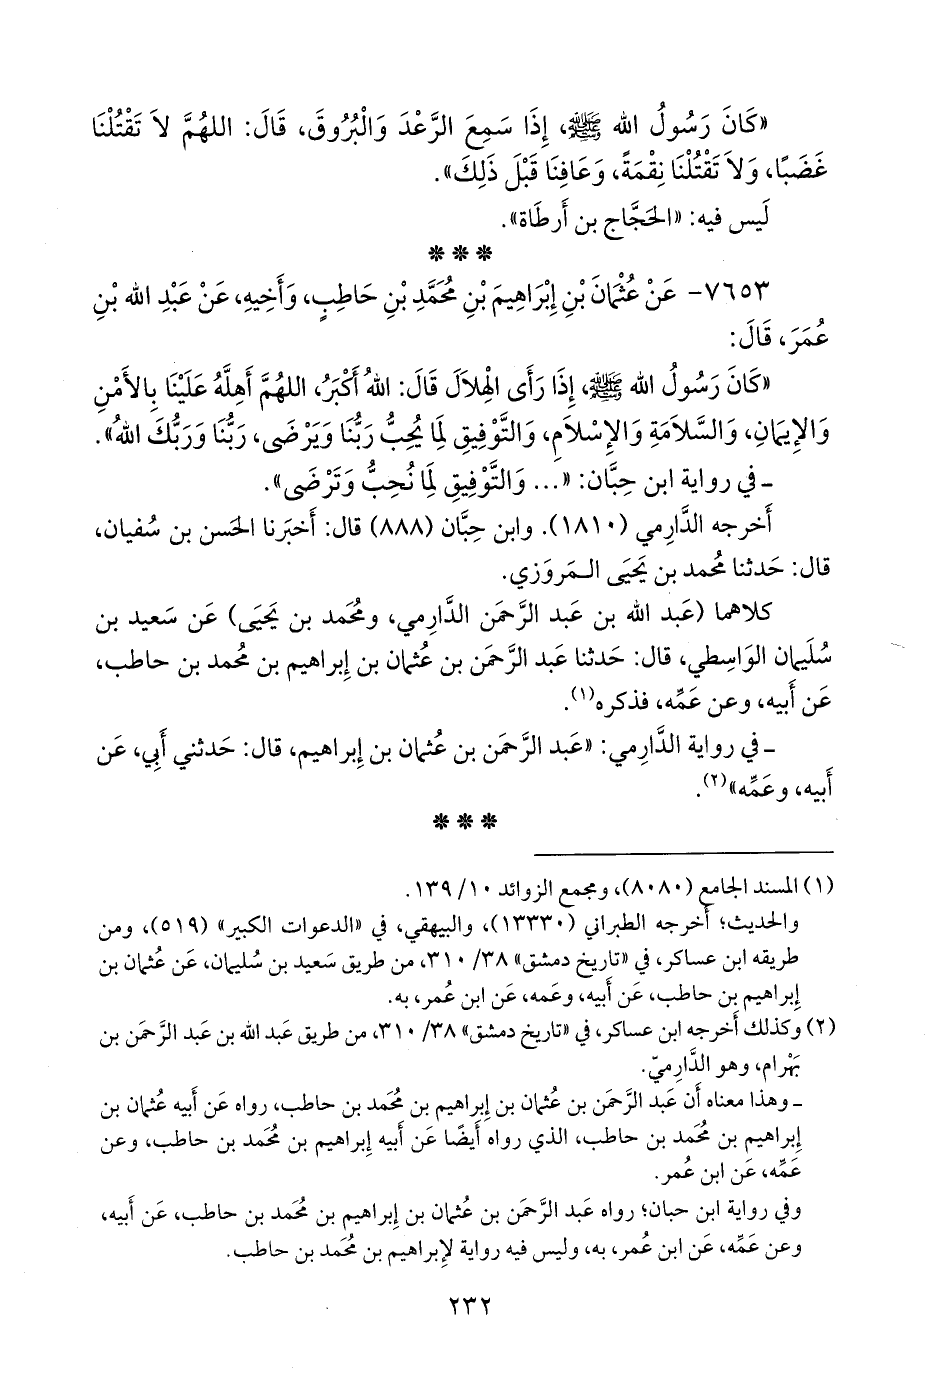 «كَانَ رَسُولُ الله ﷺ، إِذَا سَمِعَ الرَّعْدَ وَالْبُرُوقَ، قَالَ: اللهُمَّ لاَ تَقْتُلْنَا
غَضَبًا، وَلاَ تَقْتُلْنَا نِقْمَةً، وَعَافِنَا قَبْلَ ذَلِكَ».
لَيس فيه: «الحَجَّاج بن أَرطَاة».
* * *
٧٦٥٣- عَنْ عُثْمَانَ بْنِ إِبْرَاهِيمَ بْنِ مُحَمَّدِ بْنِ حَاطِبٍ، وَأَخِيهِ، عَنْ عَبْدِ الله بْنِ
عُمَرَ، قَالَ:
«كَانَ رَسُولُ الله ﷺ، إِذَا رَأَى الْهِلاَلَ قَالَ: اللهُ أَكْبَرُ، اللهُمَّ أَهِلَّهُ عَلَيْنَا بِالأَمْنِ
وَالإِيمَانِ، وَالسَّلاَمَةِ وَالإِسْلاَمِ، وَالتَّوْفِيقِ لِمَا يُحِبُّ رَبُّنَا وَيَرْضَى، رَبُّنَا وَرَبُّكَ اللهُ».
ـ في رواية ابن حِبَّان: «... وَالتَّوْفِيقِ لِمَا نُحِبُّ وَتَرْضَى».
أَخرجه الدَّارِمي (١٨١٠). وابن حِبَّان (٨٨٨) قال: أَخبَرنا الحَسن بن سُفيان،
قال: حَدثنا مُحمد بن يَحيَى الـمَروَزي.
كلاهما (عَبد الله بن عَبد الرَّحمَن الدَّارمي، ومُحمد بن يَحيَى) عَن سَعيد بن
سُليمان الوَاسِطي، قال: حَدثنا عَبد الرَّحمَن بن عُثمان بن إِبراهيم بن مُحمد بن حاطب،
عَن أَبيه، وعن عَمِّه، فذكره(١).
ـ في رواية الدَّارِمي: «عَبد الرَّحمَن بن عُثمان بن إِبراهيم، قال: حَدثني أَبي، عَن
أَبيه، وعَمِّه»(٢).
* * *
(١) المسند الجامع (٨٠٨٠)، ومجمع الزوائد ١٠/ ١٣٩.
والحديث؛ أَخرجه الطبراني (١٣٣٣٠)، والبيهقي، في «الدعوات الكبير» (٥١٩)، ومن
طريقه ابن عساكر، في «تاريخ دمشق» ٣٨/ ٣١٠، من طريق سَعيد بن سُليمان، عَن عُثمان بن
إِبراهيم بن حاطب، عَن أَبيه، وعمه، عَن ابن عُمر، به.
(٢) وكذلك أَخرجه ابن عساكر، في «تاريخ دمشق» ٣٨/ ٣١٠، من طريق عَبد الله بن عَبد الرَّحمَن بن
بَهرام، وهو الدَّارِميّ.
ـ وهذا معناه أَن عَبد الرَّحمَن بن عُثمان بن إِبراهيم بن مُحمد بن حاطب، رواه عَن أَبيه عُثمان بن
إِبراهيم بن مُحمد بن حاطب، الذي رواه أَيضًا عَن أَبيه إِبراهيم بن مُحمد بن حاطب، وعن
عَمِّه، عَن ابن عُمر.
وفي رواية ابن حبان؛ رواه عَبد الرَّحمَن بن عُثمان بن إِبراهيم بن مُحمد بن حاطب، عَن أَبيه،
وعن عَمِّه، عَن ابن عُمر، به، وليس فيه رواية لإِبراهيم بن مُحمد بن حاطب.
٢٣٢